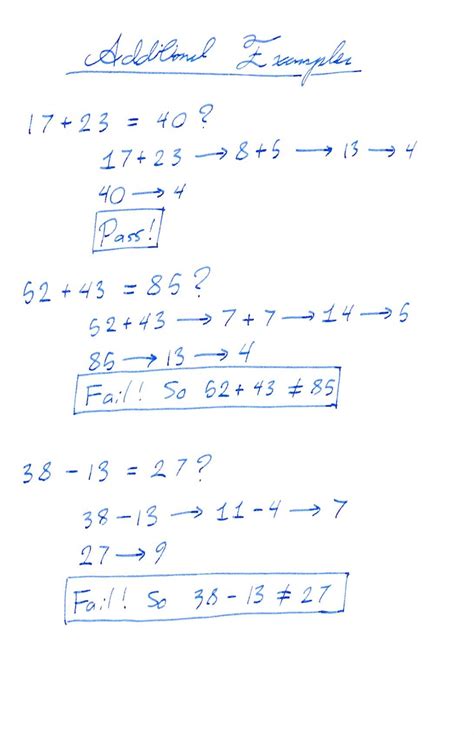 Additional Examples
17 + 23 = 40?
17 + 23 → 8 + 5 → 13 → 4
40 → 4
Pass!
52 + 43 = 85?
52 + 43 → 7 + 7 → 14 → 5
85 → 13 → 4
Fail! So 52 + 43 ≠ 85
38 - 13 = 27?
38 - 13 → 11 - 4 → 7
27 → 9
Fail! So 38 - 13 ≠ 27